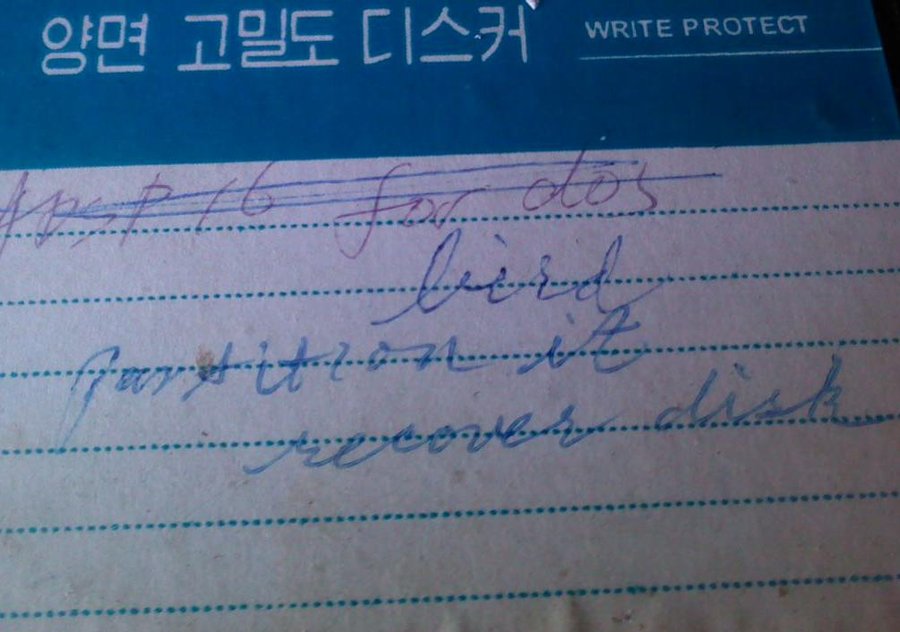 양면 고밀도 디스커 WRITE PROTECT
for dos
partition it
recover disk